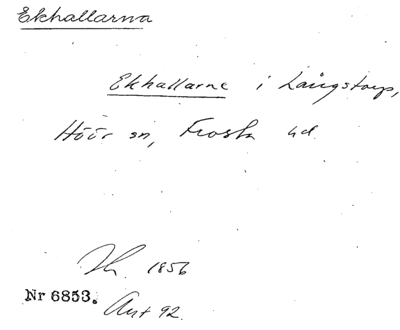 Ekhallarna
Ekhallarne i Långstorp,
Höör sn, Frosta hd
1856
Nr 6853.
Ant 92